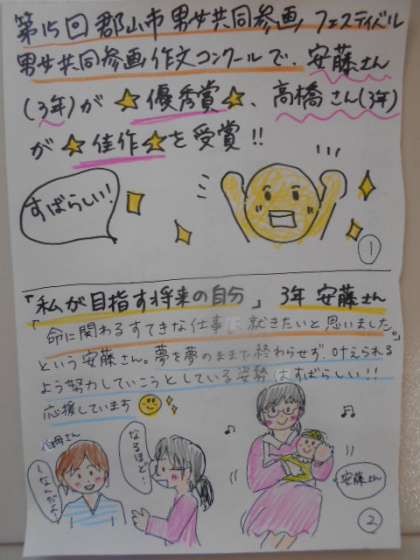 第15回 郡山市男女共同参画フェスティバル
男女共同参画作文コンクールで、安藤さん
(3年)が ★優秀賞★、高橋さん(3年)
が★佳作★を受賞!!
すばらしい!
①
「私が目指す将来の自分」 3年 安藤さん
「命に関わるすてきな仕事に就きたいと思いました。」
という安藤さん。夢を夢のままで終わらせず、叶えられる
よう努力していこうとしている姿勢はすばらしい!!
応援しています
さん
なるほど…
安藤さん
②